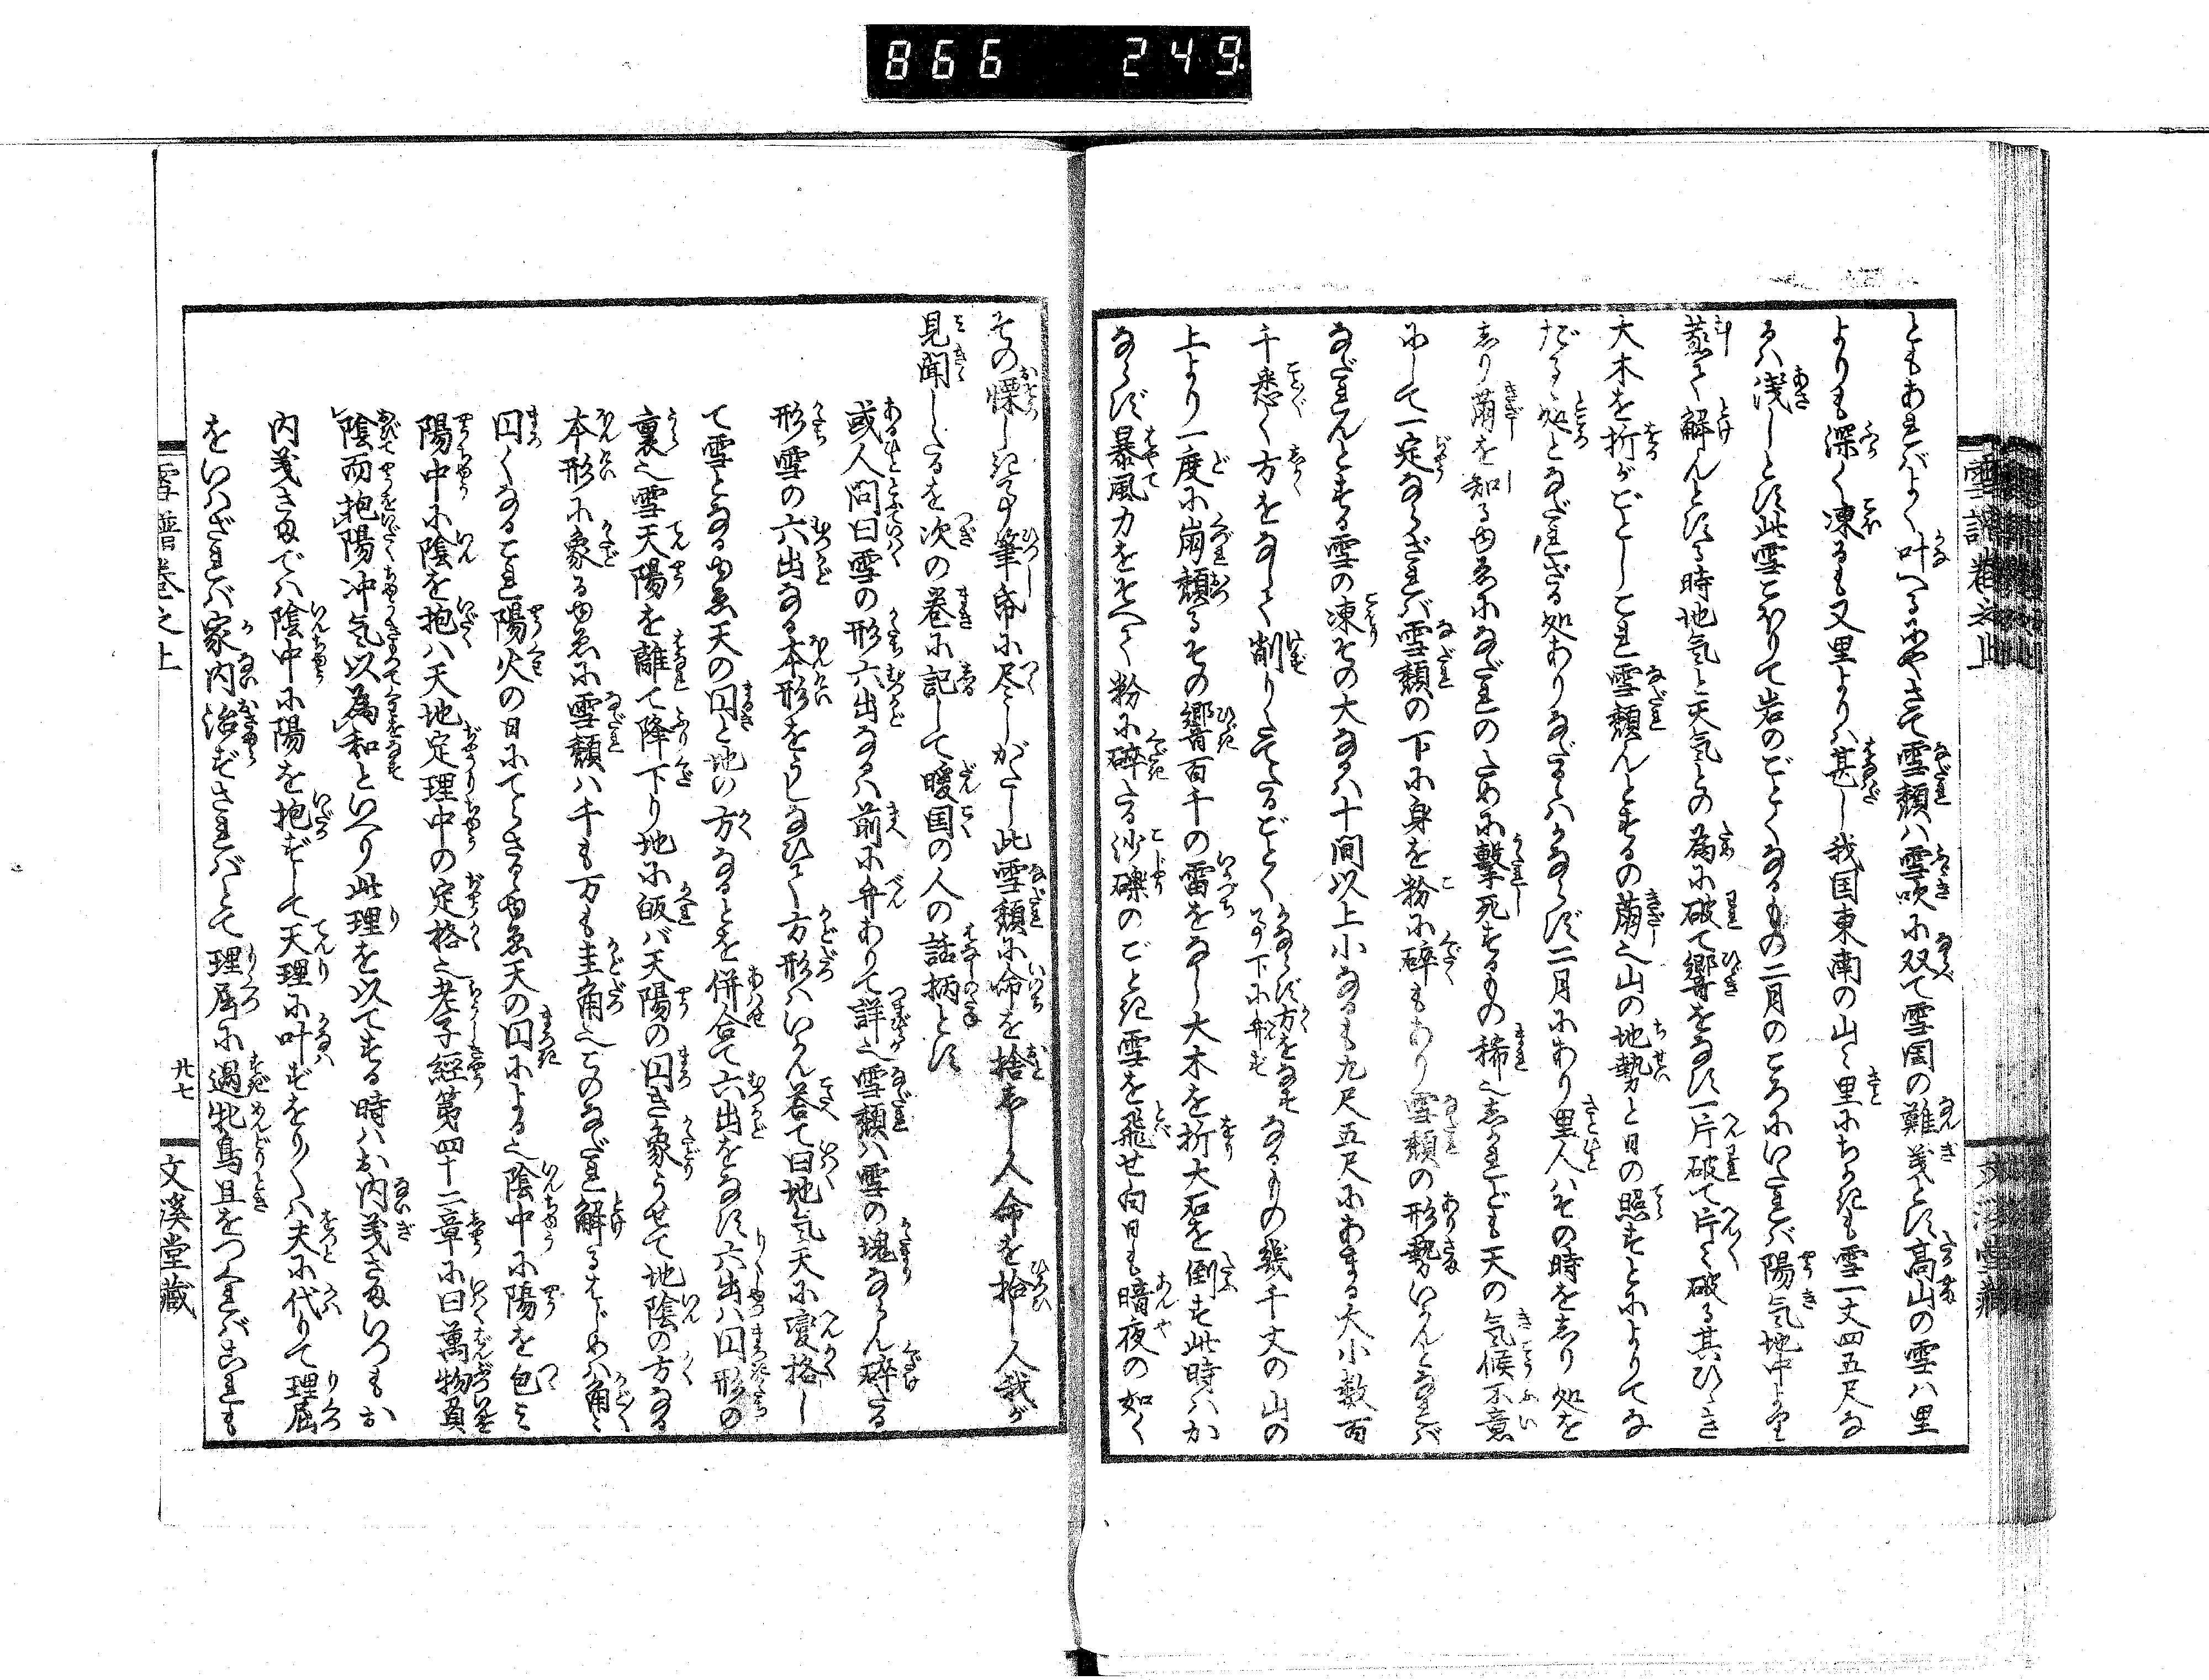 866 249
雪譜巻之上
文渓堂蔵
ともあればよく叶へるにやさて雪頽ハ雪吹に双て雪国の難義とす高山の雪ハ里
よりも深く凍るも又里よりハ甚し我国東南の山々里にちかきも雪一丈四五尺な
るハ浅しとす此雪こほりて岩のごとくなるもの二月のころにいたれバ陽気地中より
蒸て解んとする時地気と天気との為に破て響をなす一片破て片々破る其ひゞき
大木を折がごとしこれ雪頽んとするの萌也山の地勢と日の照すとによりてな
だるゝ処となだれざる処ありなだるゝハかならず二月にあり里人ハその時をしり処を
しり萌を知るゆゑになだれのために撃死するもの稀也しかれども天の気候不意
にして一定ならざれバ雪頽の下に身を粉に砕もあり雪頽の形勢いかんとなれバ
なだれんとする雪の凍その大なるハ十間以上小なるも九尺五尺にあまる大小数百
千悉く方をなして削りたてたるごとく かならず方をなす事下に弁ず なるもの幾千丈の山の
上より一度に崩頽るその響百千の雷をなし大木を折大石を倒す此時ハか
ならず暴風力をそへて粉に砕たる沙礫のごとき雪を飛せ白日も暗夜の如く
その慄しき事筆帋に尽しがたし此雪頽に命を捨し人命を拾し人我が
見聞したるを次の巻に記して暖国の人の話柄とす
或人問曰雪の形六出なるハ前に弁ありて詳也雪頽ハ雪の塊ならん砕たる
形雪の六出なる本形をうしなひて方形ハいかん荅て曰地気天に変格し
て雪となるゆゑ天の円と地の方なるとを併合て六出をなす六出ハ円形の
裏也雪天陽を離て降下り地に皈バ天陽の円き象うせて地陰の方なる
本形に象るゆゑに雪頽ハ千も万も圭角也このなだれ解るはじめハ角々
円くなるこれ陽火の日にてらさるゆゑ天の円による也陰中に陽を包み
陽中に陰を抱ハ天地定理中の定格也老子経第四十二章に曰萬物負
陰而抱陽冲気以為和といへり此理を以てする時ハお内義さまいつもお
内義さまでハ陰中に陽を抱ずして天理に叶ずをり〳〵ハ夫に代りて理屈
をいはざれバ家内治ずさればとて理屈に過牝鳥旦をつくればこれも
雪譜巻之上
廿七
文溪堂藏